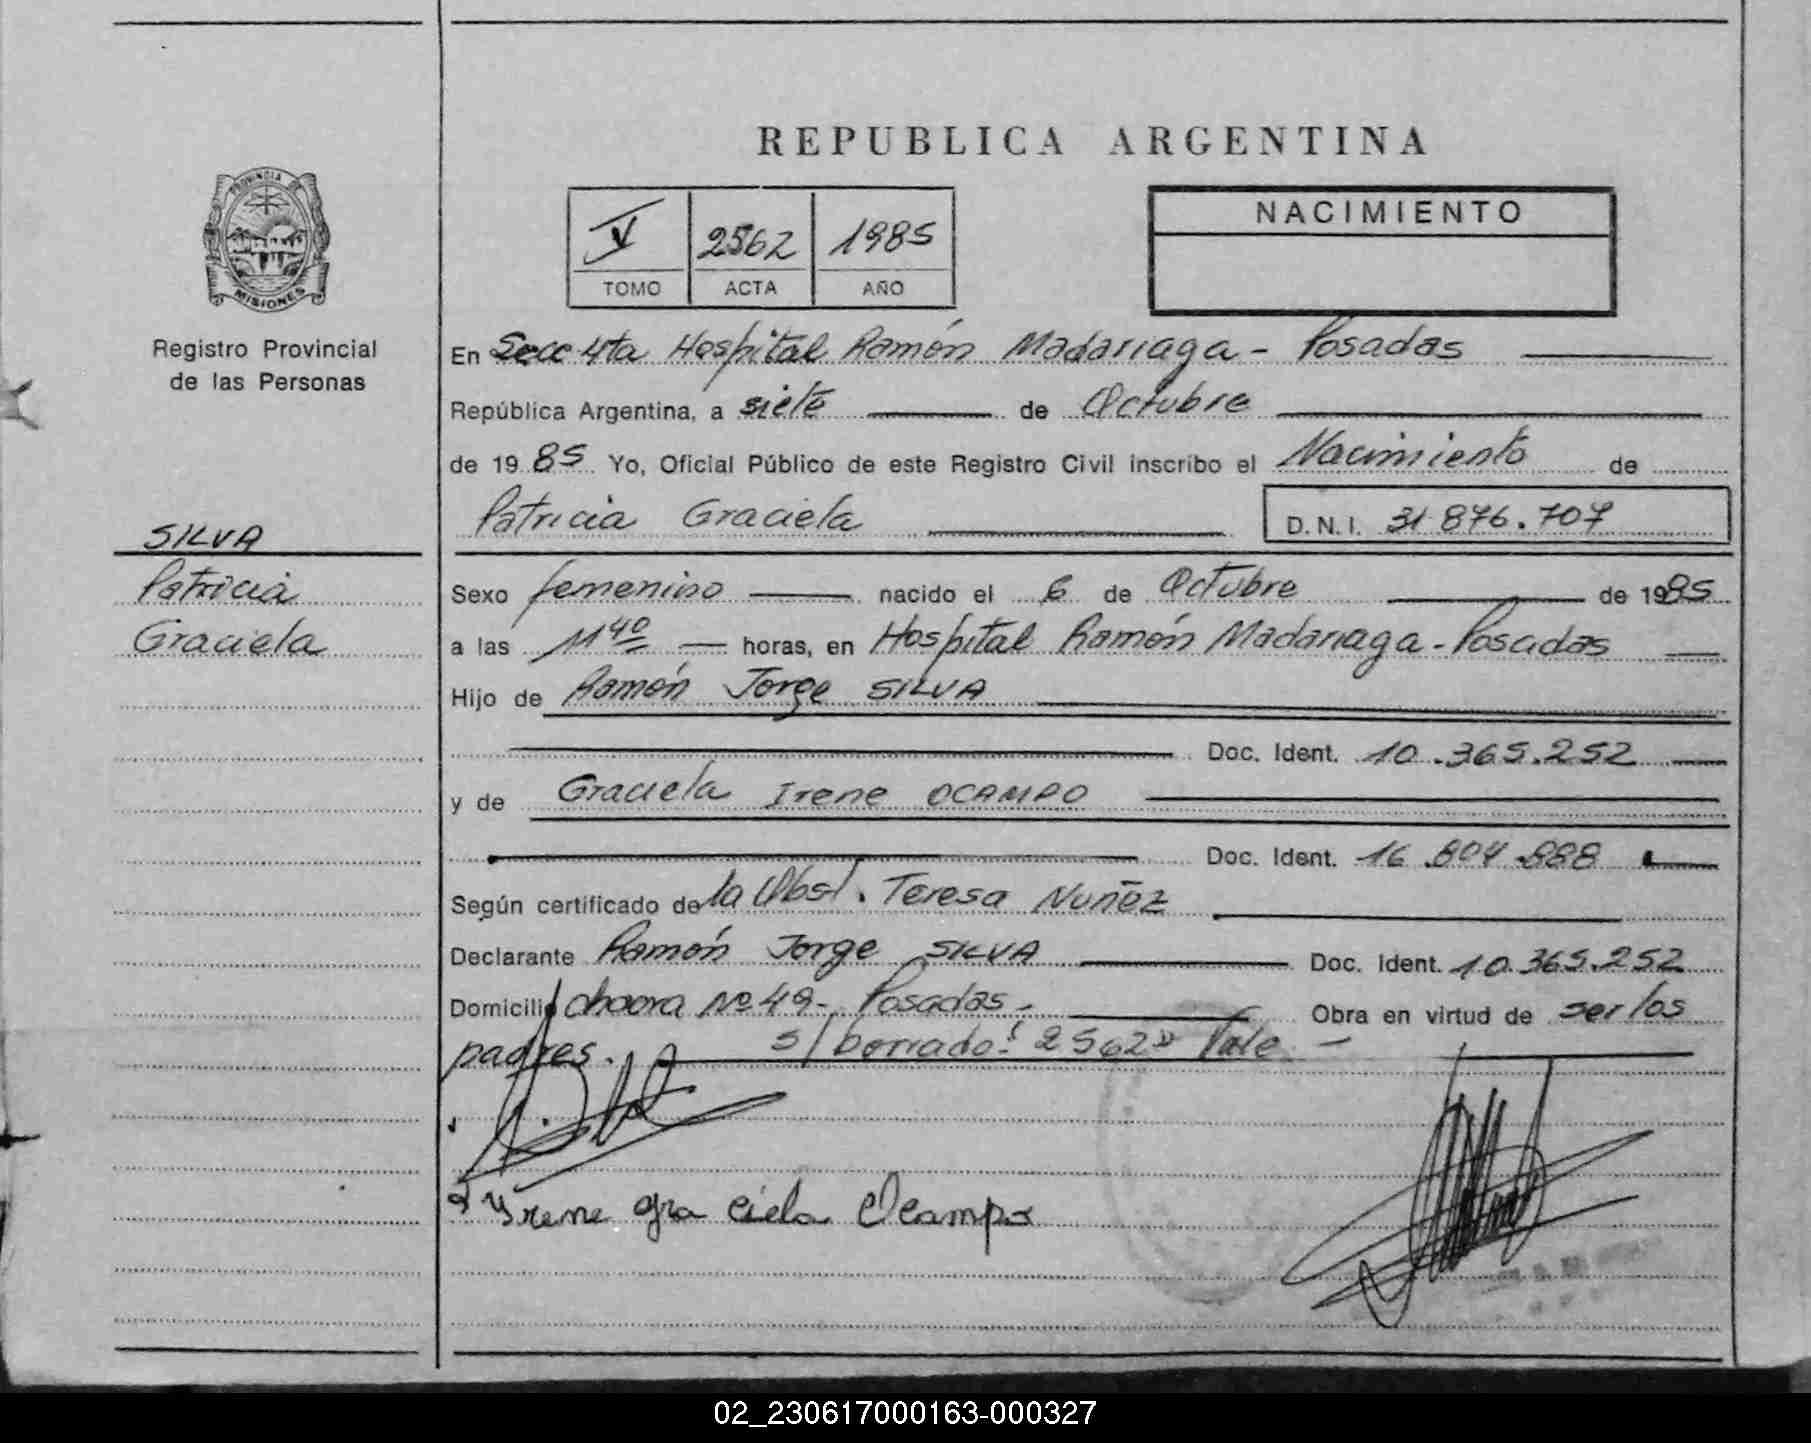 REPUBLICA ARGENTINA
PROVINCIA DE
MISIONES
Registro Provincial
de las Personas
V 2562 1985
TOMO ACTA AÑO
NACIMIENTO
En Secc 4ta Hospital Ramón Madariaga - Posadas
República Argentina, a siete de Octubre
de 1985 Yo, Oficial Público de este Registro Civil inscribo el Nacimiento de
Patricia Graciela D.N.I. 31 876.707
SILVA
Patricia
Graciela
Sexo femenino nacido el 6 de Octubre de 1985
a las 11 40 horas, en Hospital Ramón Madariaga - Posadas
Hijo de Ramón Jorge SILVA
Doc. Ident. 10.365.252
y de Graciela Irene OCAMPO
Doc. Ident. 16.804.888
Según certificado de la Obst. Teresa Nuñez
Declarante Ramón Jorge SILVA Doc. Ident. 10.365.252
Domicilio chacra Nº 49 - Posadas - Obra en virtud de ser los
padres. s/borrado: 2562" Vale -
Yrene gra ciela Ocampo
02_230617000163-000327